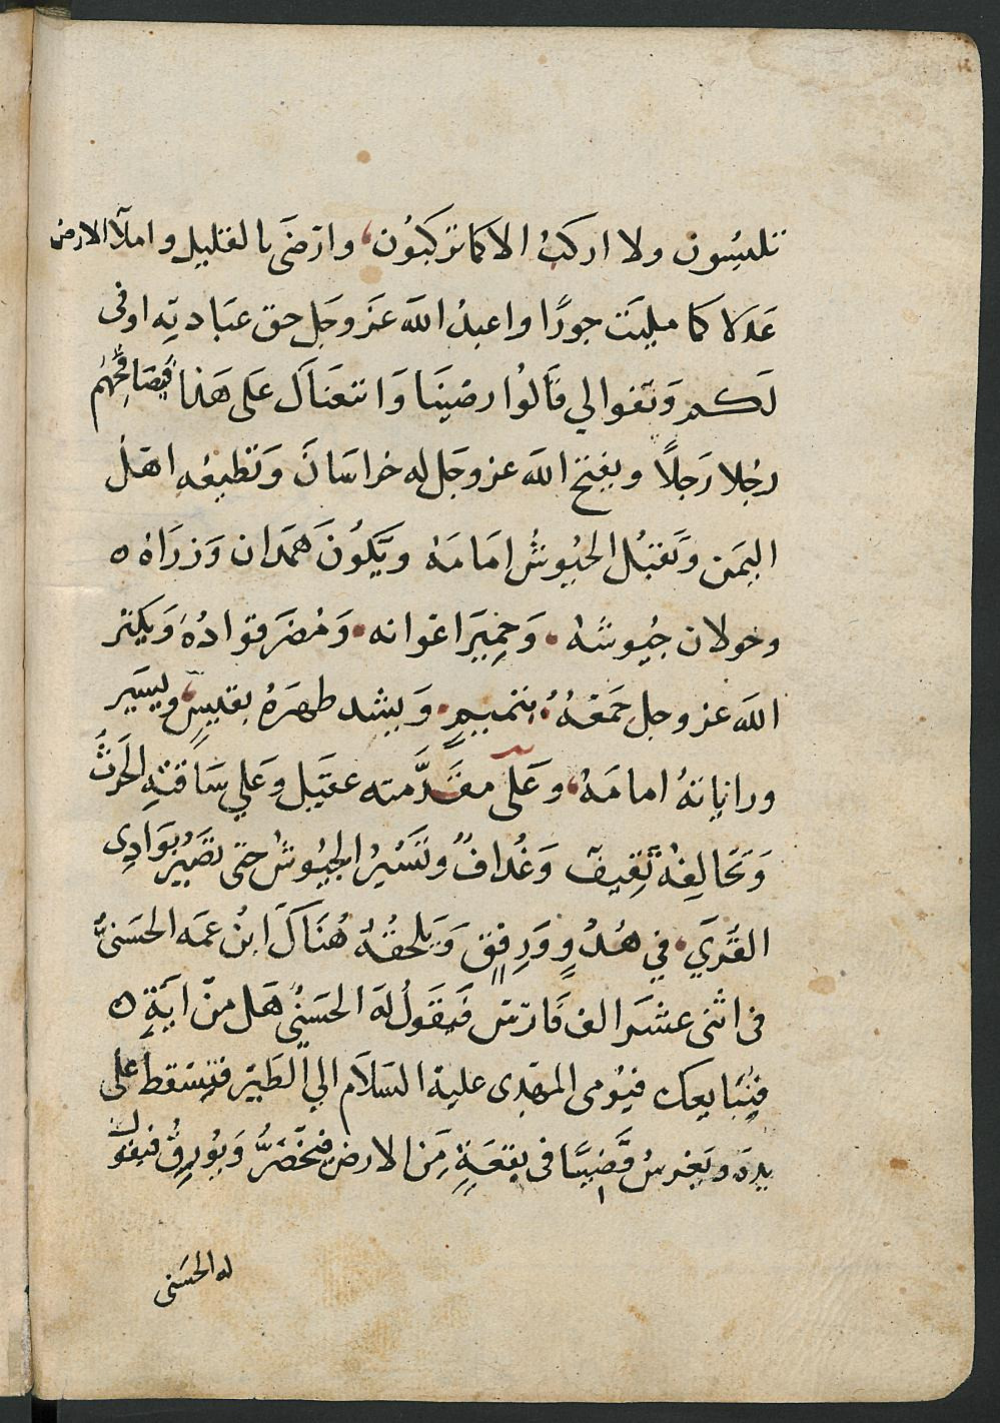 تلبسون ولا اركب الا كما تركبون، وارضَى بالقليل واملآ الارض
عَدلا كما مليَت جورًا واعبدُ اللّه عَزَ وجَل حق عبَادتِه اوفى
لَكم وَتفوا لي قالوُا رضينَا وَاتبعنَاك علَى هَذا فيُصَافحُهم
رجُلا رَجلاً ويفتح اللّه عز وجَل له خراسَانَ وَتطيعُه اهلُ
اليمَن وَتقبُل الجيُوشُ امَامَهُ ويَكوُنَ هَمدان وَزرَاهُ ه
وخولان جيُوشهُ • وَحِميَر اعوانه • وَمُضَر قوادُهُ وَيكثر
اللّه عز وجل جَمعَهُ • بتميمٍ • وَيشد ظهرَهُ بقيسٍ، ويسَير
وراياتهُ امامَهُ، وعَلَى مقَدَّمته عقيَل وعَلي سَاقتِهِ الحَرثُ
وَتخالِفهُ ثَقيف وَغُدافُ وتَسيُر الجيُوشُ حتى تصَيُر بوَادِى
القُرَي • في هُدُوٍ وَرِفقٍ وَيلحقُهُ هُنَاكَ ابنُ عمَه الحسَنىُّ
فى اثنى عشَر الف فَارسَ فَيقَولُ لهَ الحسَنيُ هَل منّ ايَةٍ ه
فنُبَايعك فيُومى المهَدِى عليهَ السَلاَم الي الطَير فتِسَقط على
يدهَ ويَغرسُ قَضيبًا فى بقعَةٍ مَنِ الارضِ فيَخَضرُّ وَيُورِقُ فيقوُل
له الحسَنى